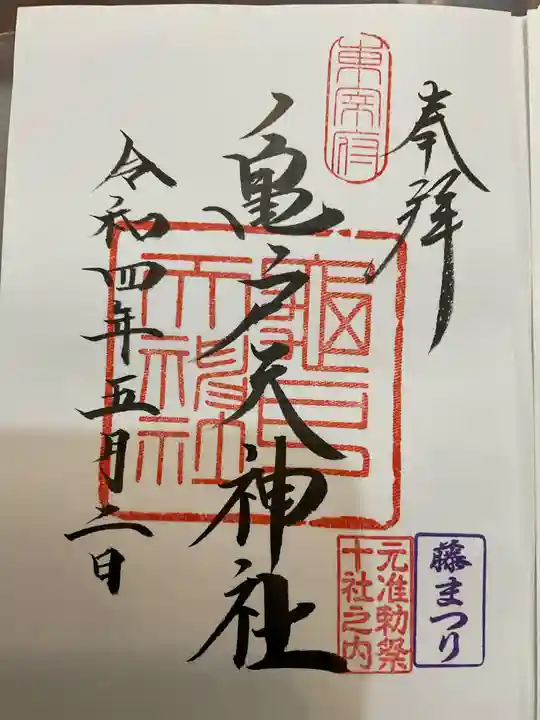 奉拝
東宰府
亀戸天神社
令和四年五月二日
龜戸天神社
元准勅祭
十社之内
藤まつり